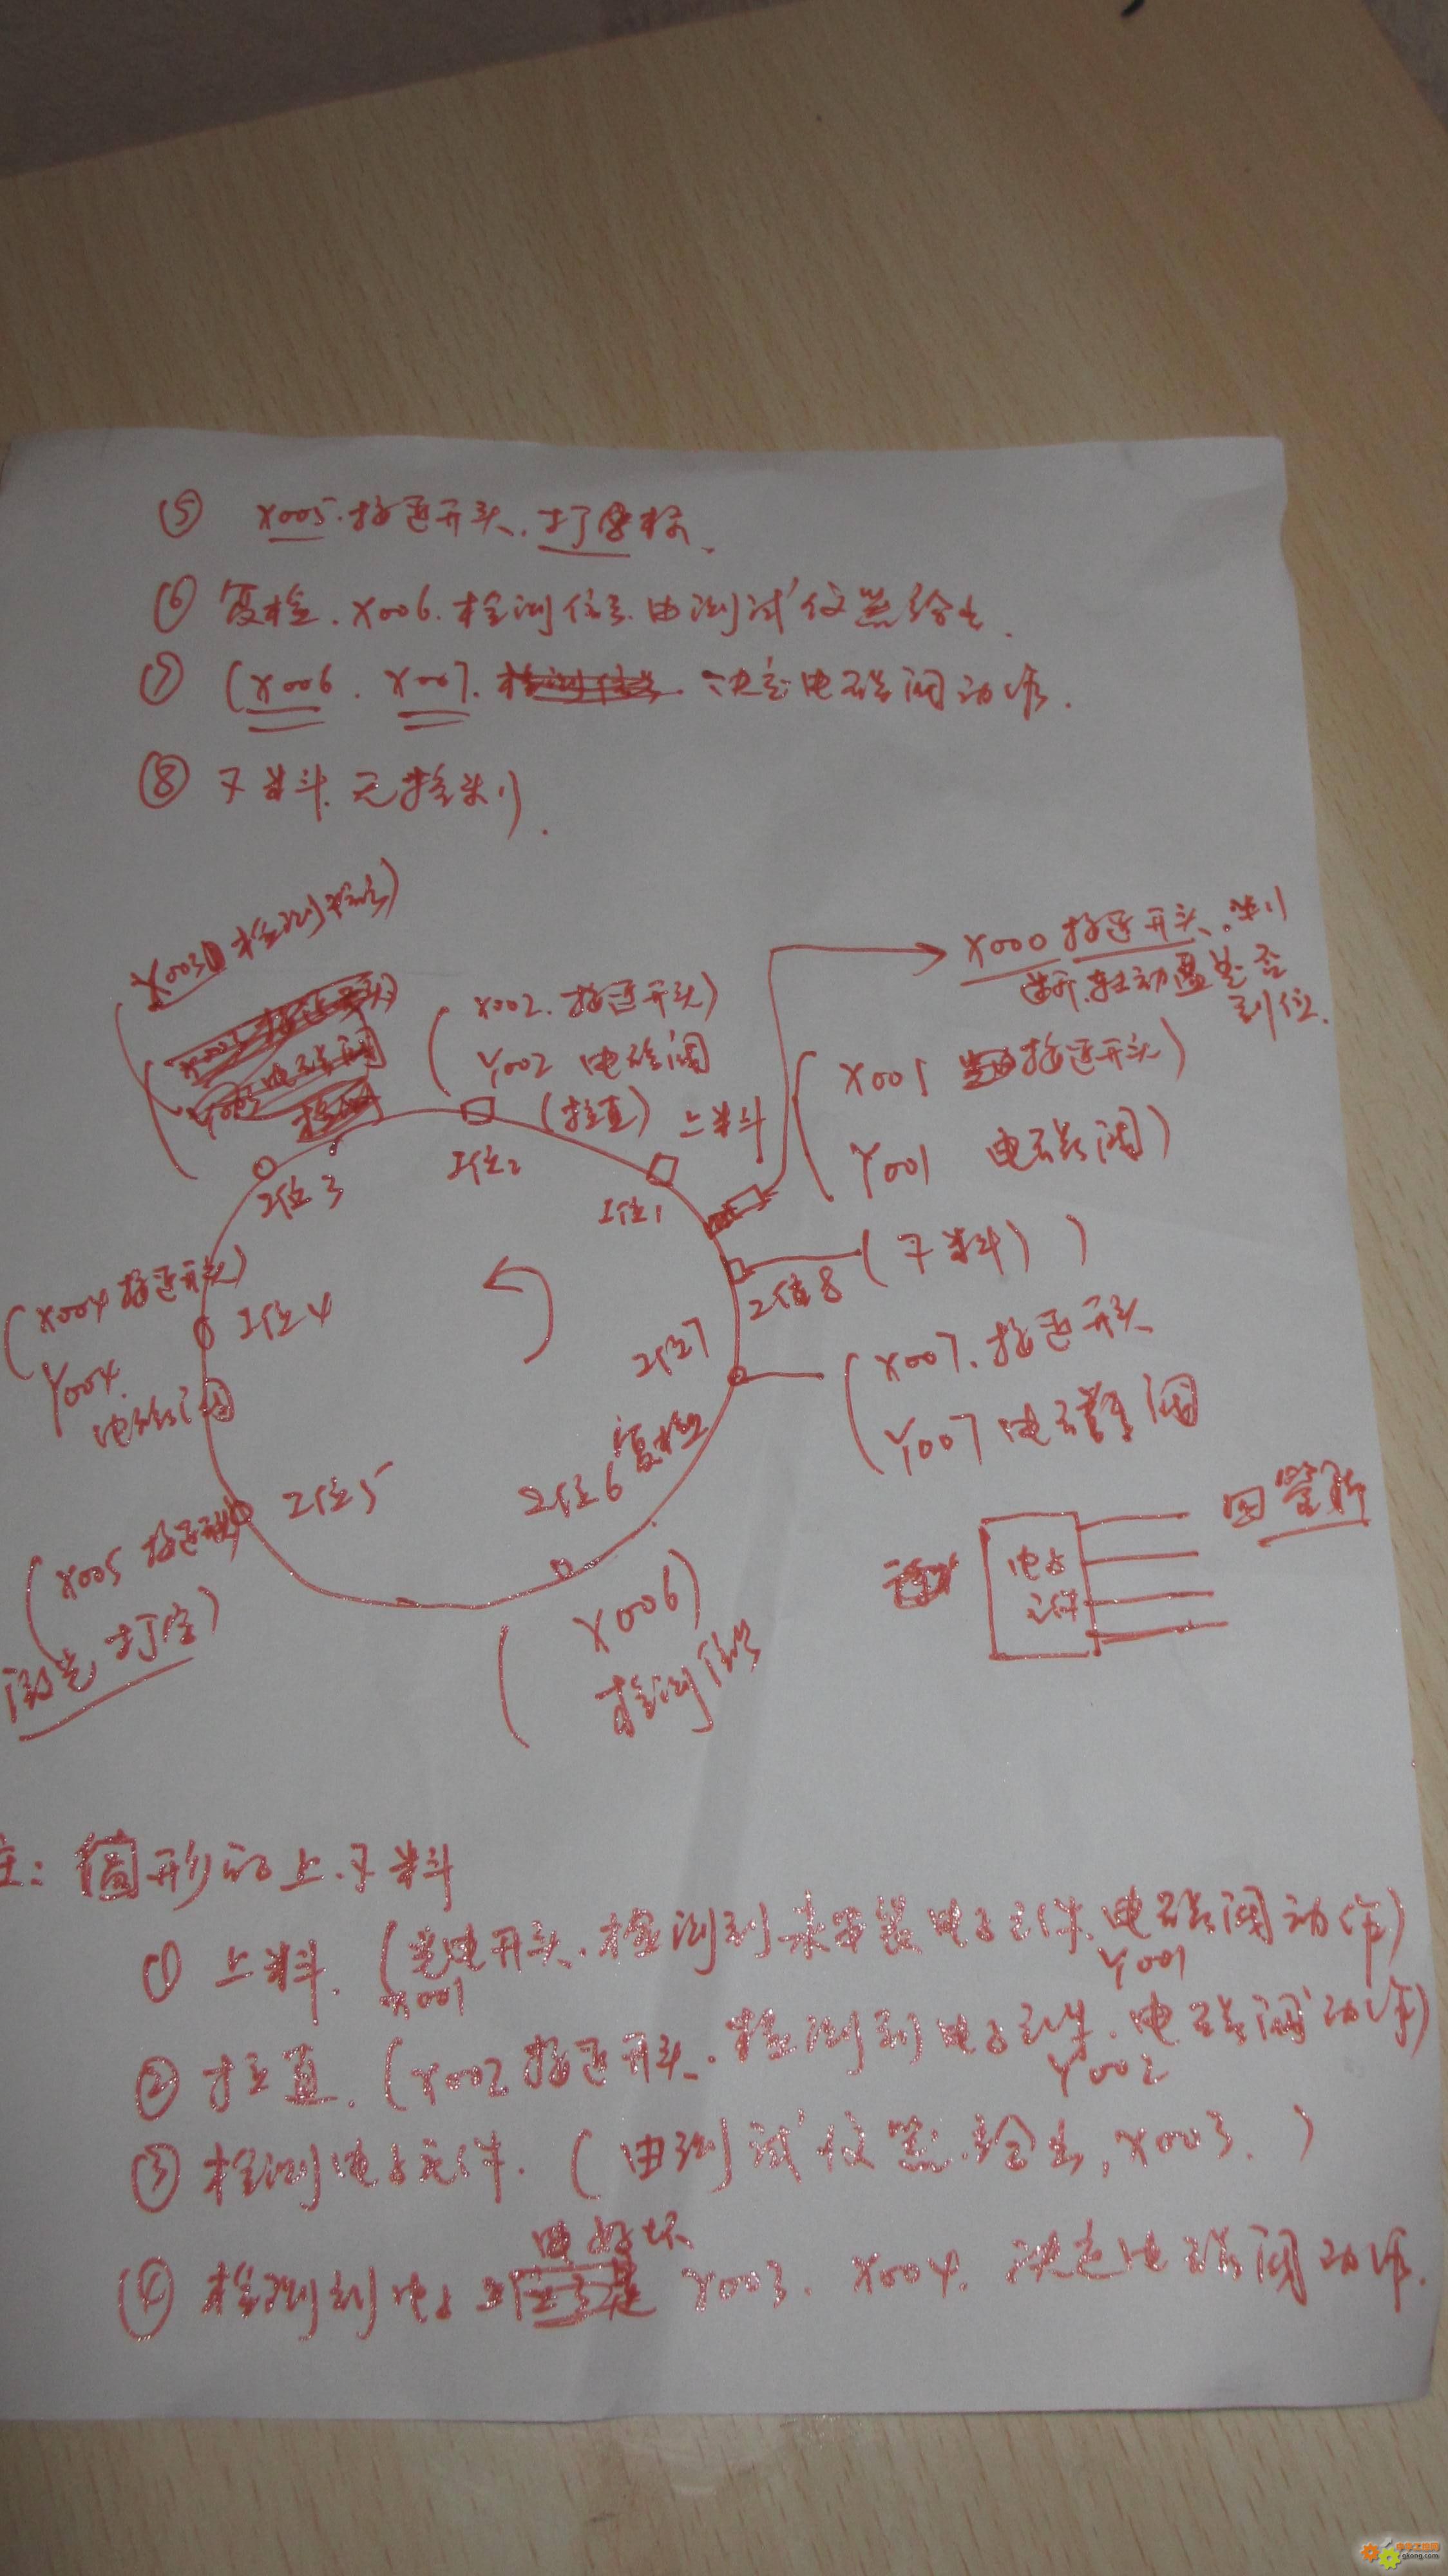 ⑤ X005.接近开关.打 标.
⑥ 复检.X006.检测信号.由测试仪器给出.
⑦ (X006.X007. 决定电磁阀动作.
⑧ 下料.无控制.
X003 检测
(X002.接近开关)
Y002 电磁阀
(拉直) 上料
X000接近开关.判
断.转动盘是否
到位.
X001 接近开关)
Y001 电磁阀)
工位1
工位2
工位3
(X004接近开关)
Y004.
电磁阀
工位4
工位8 (下料)
工位7
(X007.接近开关
Y007电磁阀
复检
工位6
工位5
(X005 接近
激光打字)
(X006)
检测信号
电子
元件
四管脚
注: 圆形的上.下料
① 上料.(光电开关.检测到 电子元件.电磁阀动作)
X001 Y001
② 拉直.(Y002接近开关.检测到电子元件.电磁阀动作)
Y002
③ 检测电子元件.(由测试仪器给出,X003.)
好坏
④ 检测到电子 Y003.X004.决定电磁阀动作.
gkong.com